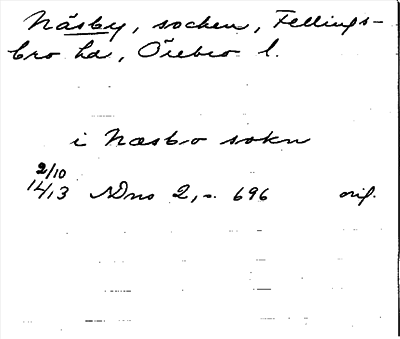 Näsby, socken, Fellings-
bro hd, Örebro l.
i Næsbo sokn
2/10
1413 NDns 2, s. 696 orig.